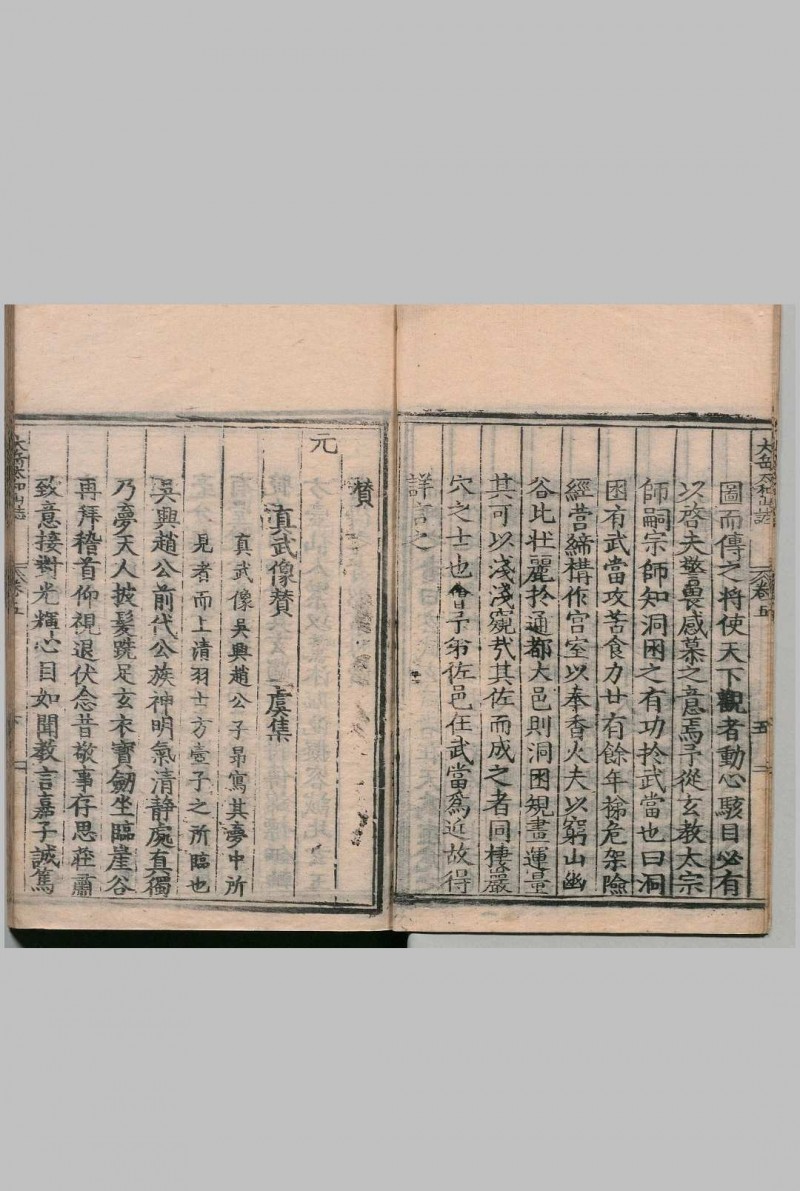 大岳太和山誌
卷五
五
圖而傳之将使天下觀者動心駭目必有
以啓夫警畏感慕之意焉予從玄教太宗
師嗣宗師知洞囷之有功扵武當也曰洞
囷有武當攻苦食力廿有餘年梯危架險
經营締構作宫室以奉香火夫以窮山幽
谷比壮麗扵通都大邑則洞囷規畫運量
其可以淺淺窺㢤其佐而成之者同棲巖
穴之士也會予弟佐邑在武當為近故得
詳言之
贊
元
真武像贊
虞集
真武像吳興趙公子昂寫其夢中所
見者而上清羽士方壺子之所臨也
吳興趙公前代公族神明氣清静處真獨
乃夢天人披髮跣足玄衣寶劒坐臨崖谷
再拜稽首仰視退伏念昔敬事存思莊肅
致意接對光輝心目如聞教言嘉子誠篤
大岳太和山誌
卷五